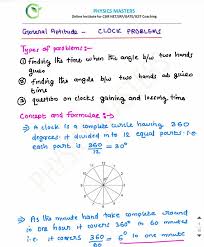 PHYSICS MASTERS
Online Institute for CSIR NET/JRF/GATE/JEST Coaching
General Aptitude - CLOCK PROBLEMS
Types of problems :-
① finding the time when the angle b/w two hands
given
② finding the angle b/w two hands at given
time
③ question on clocks gaining and loosing time
Concepts and formulae :-
⇒ A clock is a complete circle having 360
degrees. it divided in to 12 equal parts. i.e
each part is 360/12 = 30°
⇒ As the minute hand take complete round
in one hour it covers 360° in 60 minutes
i.e. it covers 360/60 = 6° in one minute